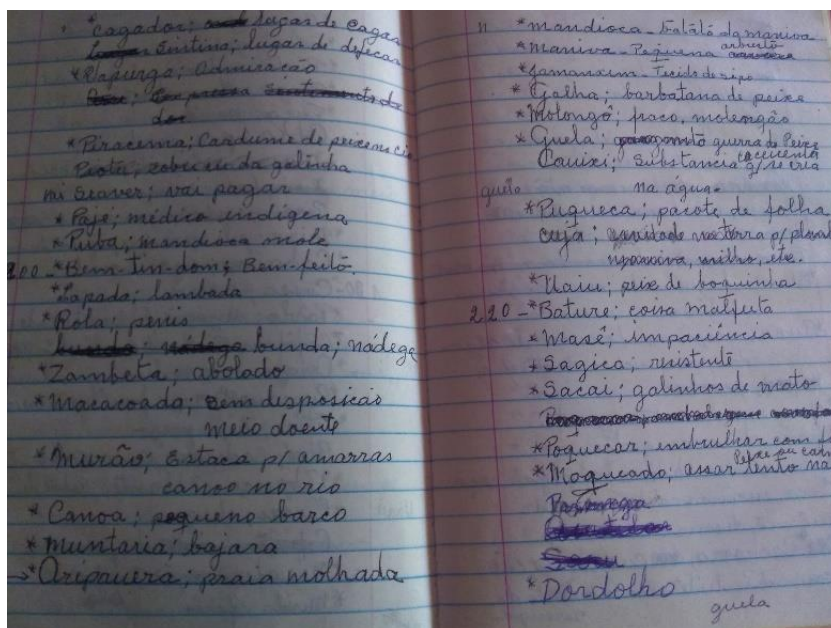 *Cagador; lugar de cagar
Sintina; lugar de defecar
*Rapurga; Admiração
dor
*Piracema; Cardume de peixe no cio
Piota; sobre cu da galinha
vai pagar
*Pajé; médico indígena
*Puba; mandioca mole
200-*Bem-tin-dom; Bem-feito.
*Lapada; lambada
*Rola; penis
bunda; nádega
*Zambeta; abolado
*Macacoada; sem desposicão
meio doente
*Murão; Estaca p/ amarras
canoo no rio
*Canoa; pequeno barco
*muntaria; bajara
*Aripauera; praia molhada
*mandioca - batata da maniva
*maniva - Pequena arbusto
*Jamanxim - Tecido de sipo
*Galha; barbatana de peixe
*Molongó; fraco, molengão
*Guela; guerra de Peixe
Cauixi; substancia q/ se cria
na água.
*Puqueca; pacote de folha
cuja; na terra p/
maniva, milho, etc.
*Uaiu; peixe de boquinha
220-*Bature; coisa malfeita
*Masê; impaciência
*Sagica; resistente
*Sacai; galinhos de mato
*Poquecar; embrulhar com
*Moqueado; assar lento na
peixe ou carne
*Dordolho
guela